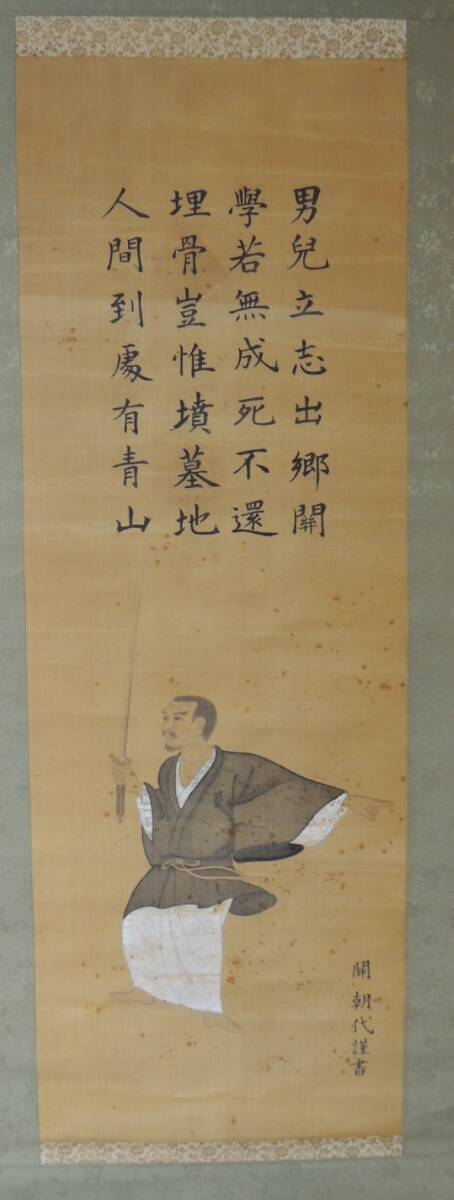 男兒立志出鄉關
學若無成死不還
埋骨豈惟墳墓地
人間到處有青山
關朝代謹書